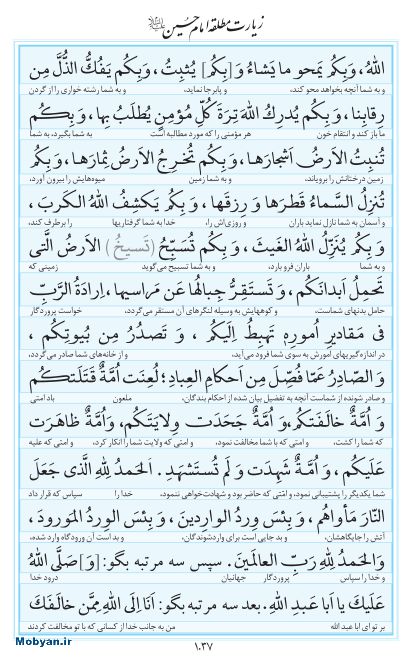 زیارت مطلقهٔ امام حسین علیه‌السلام
اللهُ، وَ بِكُم يَمحو ما يَشاءُ وَ [بِكُم] يُثبِتُ، وَ بِكُم يَفُكُّ الذُّلَّ مِن
و به شما آنچه بخواهد محو کند، و پابرجا نماید، و به شما رشته خواری را از گردن
رِقابِنا، وَ بِكُم يُدرِكُ اللهُ تِرَةَ كُلِّ مُؤمِنٍ يُطلَبُ بِها، وَ بِكُم
ما باز کند و انتقام خون هر مؤمنی را که مورد مطالبه است به شما بگیرد، به شما
تُنبِتُ الأرضُ أشجارَها، وَ بِكُم تُخرِجُ الأرضُ ثِمارَها، وَ بِكُم
زمین درختانش را برویاند، و به شما زمین میوه‌هایش را بیرون آورد،
تُنزِلُ السَّماءُ قَطرَها وَ رِزقَها، وَ بِكُم يَكشِفُ اللهُ الكَربَ،
و آسمان به شما نازل نماید باران و روزی‌اش را، خدا به شما گرفتاریها را برطرف کند،
وَ بِكُم يُنَزِّلُ اللهُ الغَيثَ، وَ بِكُم تُسَبِّحُ (تَسيخُ) الأرضُ الَّتى
و به شما باران فرو بارد، و به شما تسبیح می‌گوید زمینی که
تَحمِلُ أبدانَكُم، وَ تَستَقِرُّ جِبالُها عَن مَراسيها، إرادَةُ الرَّبِّ
حامل بدنهای شماست، و کوههایش به وسیله لنگرهای آن مستقر می‌گردد، خواست پروردگار
فى مَقاديرِ أُمورِهِ تَهبِطُ إلَيكُم، وَ تَصدُرُ مِن بُيوتِكُم،
در اندازه‌گیریهای امورش به سوی شما فرود می‌آید، و از خانه‌های شما صادر می‌گردد،
وَ الصّادِرُ عَمّا فُصِّلَ مِن أحكامِ العِبادِ؛ لُعِنَت أُمَّةٌ قَتَلَتكُم
و صادر شونده از شماست آنچه به تفضیل بیان شده از احکام بندگان، ملعون باد امتی
وَ أُمَّةٌ خالَفَتكُم، وَ أُمَّةٌ جَحَدَت وِلايَتَكُم، وَ أُمَّةٌ ظاهَرَت
که شما را کشت، و امتی که با شما مخالفت نمود، و امتی که ولایت شما را انکار کرد، و امتی که علیه
عَلَيكُم، وَ أُمَّةٌ شَهِدَت وَ لَم تُستَشهَد. ألحَمدُ لِلّهِ الَّذى جَعَلَ
شما یکدیگر را پشتیبانی نمود، و امتی که حاضر بود و شهادت‌خواهی ننمود، خدا را سپاس که قرار داد
النّارَ مَأواهُم، وَ بِئسَ وِردُ الوارِدينَ، وَ بِئسَ الوِردُ المَورودُ،
آتش را جایگاهشان، و بد جایی است برای واردشوندگان، و بد است آن ورودگاه وارد شده،
وَ الحَمدُ لِلّهِ رَبِّ العالَمينَ. پس سه مرتبه بگو: [وَ] صَلَّى اللهُ
و خدا را سپاس پروردگار جهانیان درود خدا
عَلَيكَ يا أبا عَبدِ اللهِ. بعد سه مرتبه بگو: أنَا إلَى اللهِ مِمَّن خالَفَكَ
بر تو ای ابا عبد الله من به جانب خدا از کسانی که با تو مخالفت کردند
۱۰۳۷
Mobyan.ir